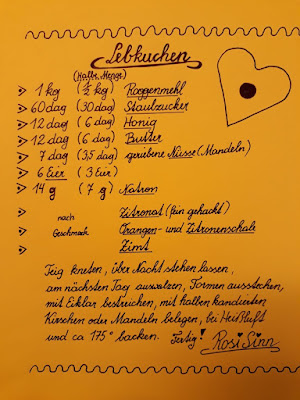 Lebkuchen
(Halbe Menge)
1 kg (½ kg) Roggenmehl
60 dag (30 dag) Staubzucker
12 dag (6 dag) Honig
12 dag (6 dag) Butter
7 dag (3,5 dag) geriebene Nüsse (Mandeln)
6 Eier (3 Eier)
14 g (7 g) Natron
nach Zitronat (fein gehackt)
Geschmack Orangen- und Zitronenschale
Zimt
Teig kneten, über Nacht stehen lassen,
am nächsten Tag auswalzen, Formen ausstechen,
mit Eiklar bestreichen, mit halben kandierten
Kirschen oder Mandeln belegen, bei Heißluft
und ca 175° backen. Fertig! Rosi Sinn